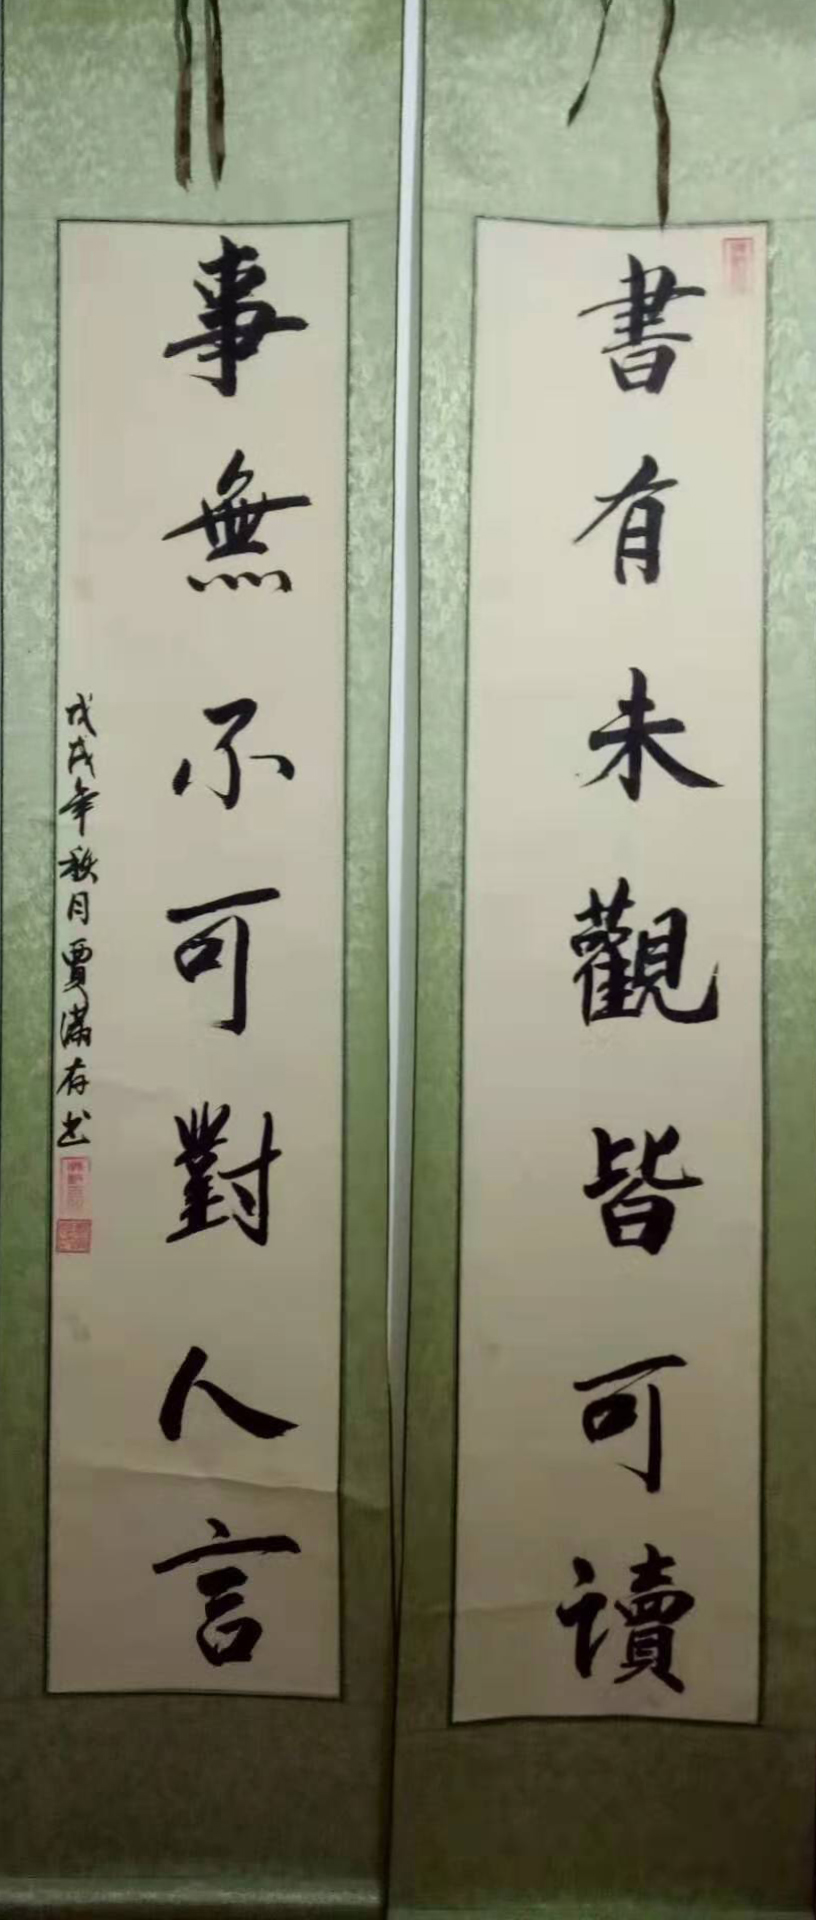 書有未觀皆可讀
事無不可對人言
戊戌年秋月賈滿存书